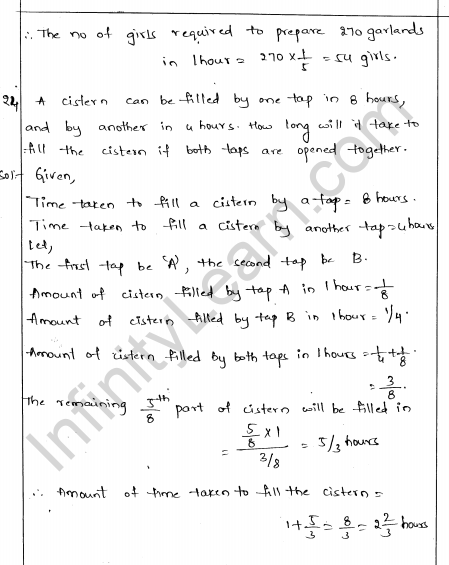 ∴ The no of girls required to prepare 270 garlands
in 1 hour = 270 × 1/5 = 54 girls.
24 A cistern can be filled by one tap in 8 hours,
and by another in 4 hours. How long will it take to
fill the cistern if both taps are opened together.
Sol:- Given,
Time taken to fill a cistern by a tap = 8 hours.
Time taken to fill a cistern by another tap = 4 hours
let,
The first tap be 'A', the second tap be B.
Amount of cistern filled by tap A in 1 hour = 1/8
Amount of cistern filled by tap B in 1 hour = 1/4.
Amount of cistern filled by both taps in 1 hours = 1/4 + 1/8.
= 3/8.
The remaining 5/8 th part of cistern will be filled in
= (5/8 × 1)/(3/8) = 5/3 hours
∴ Amount of time taken to fill the cistern =
1 + 5/3 = 8/3 = 2 2/3 hours
InfinityLearn.com